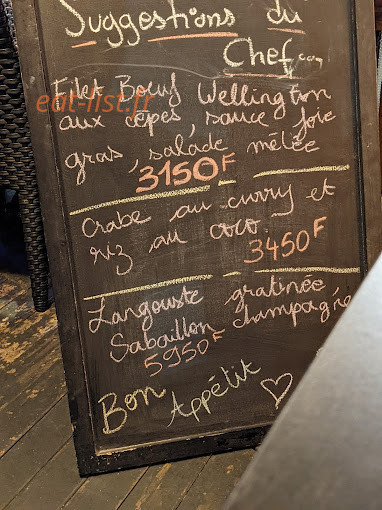 Suggestions du
Chef...
Filet Boeuf Wellington
eat-list.fr
aux cèpes, sauce foie
gras, salade mêlée
3150F
Crabe au curry et
riz au coco.
3450F
Langouste gratinée
Sabaillon champagne
5950F
Bon Appétit